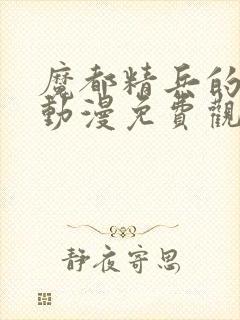 魔都精兵的
動漫免費觀
靜夜寄思